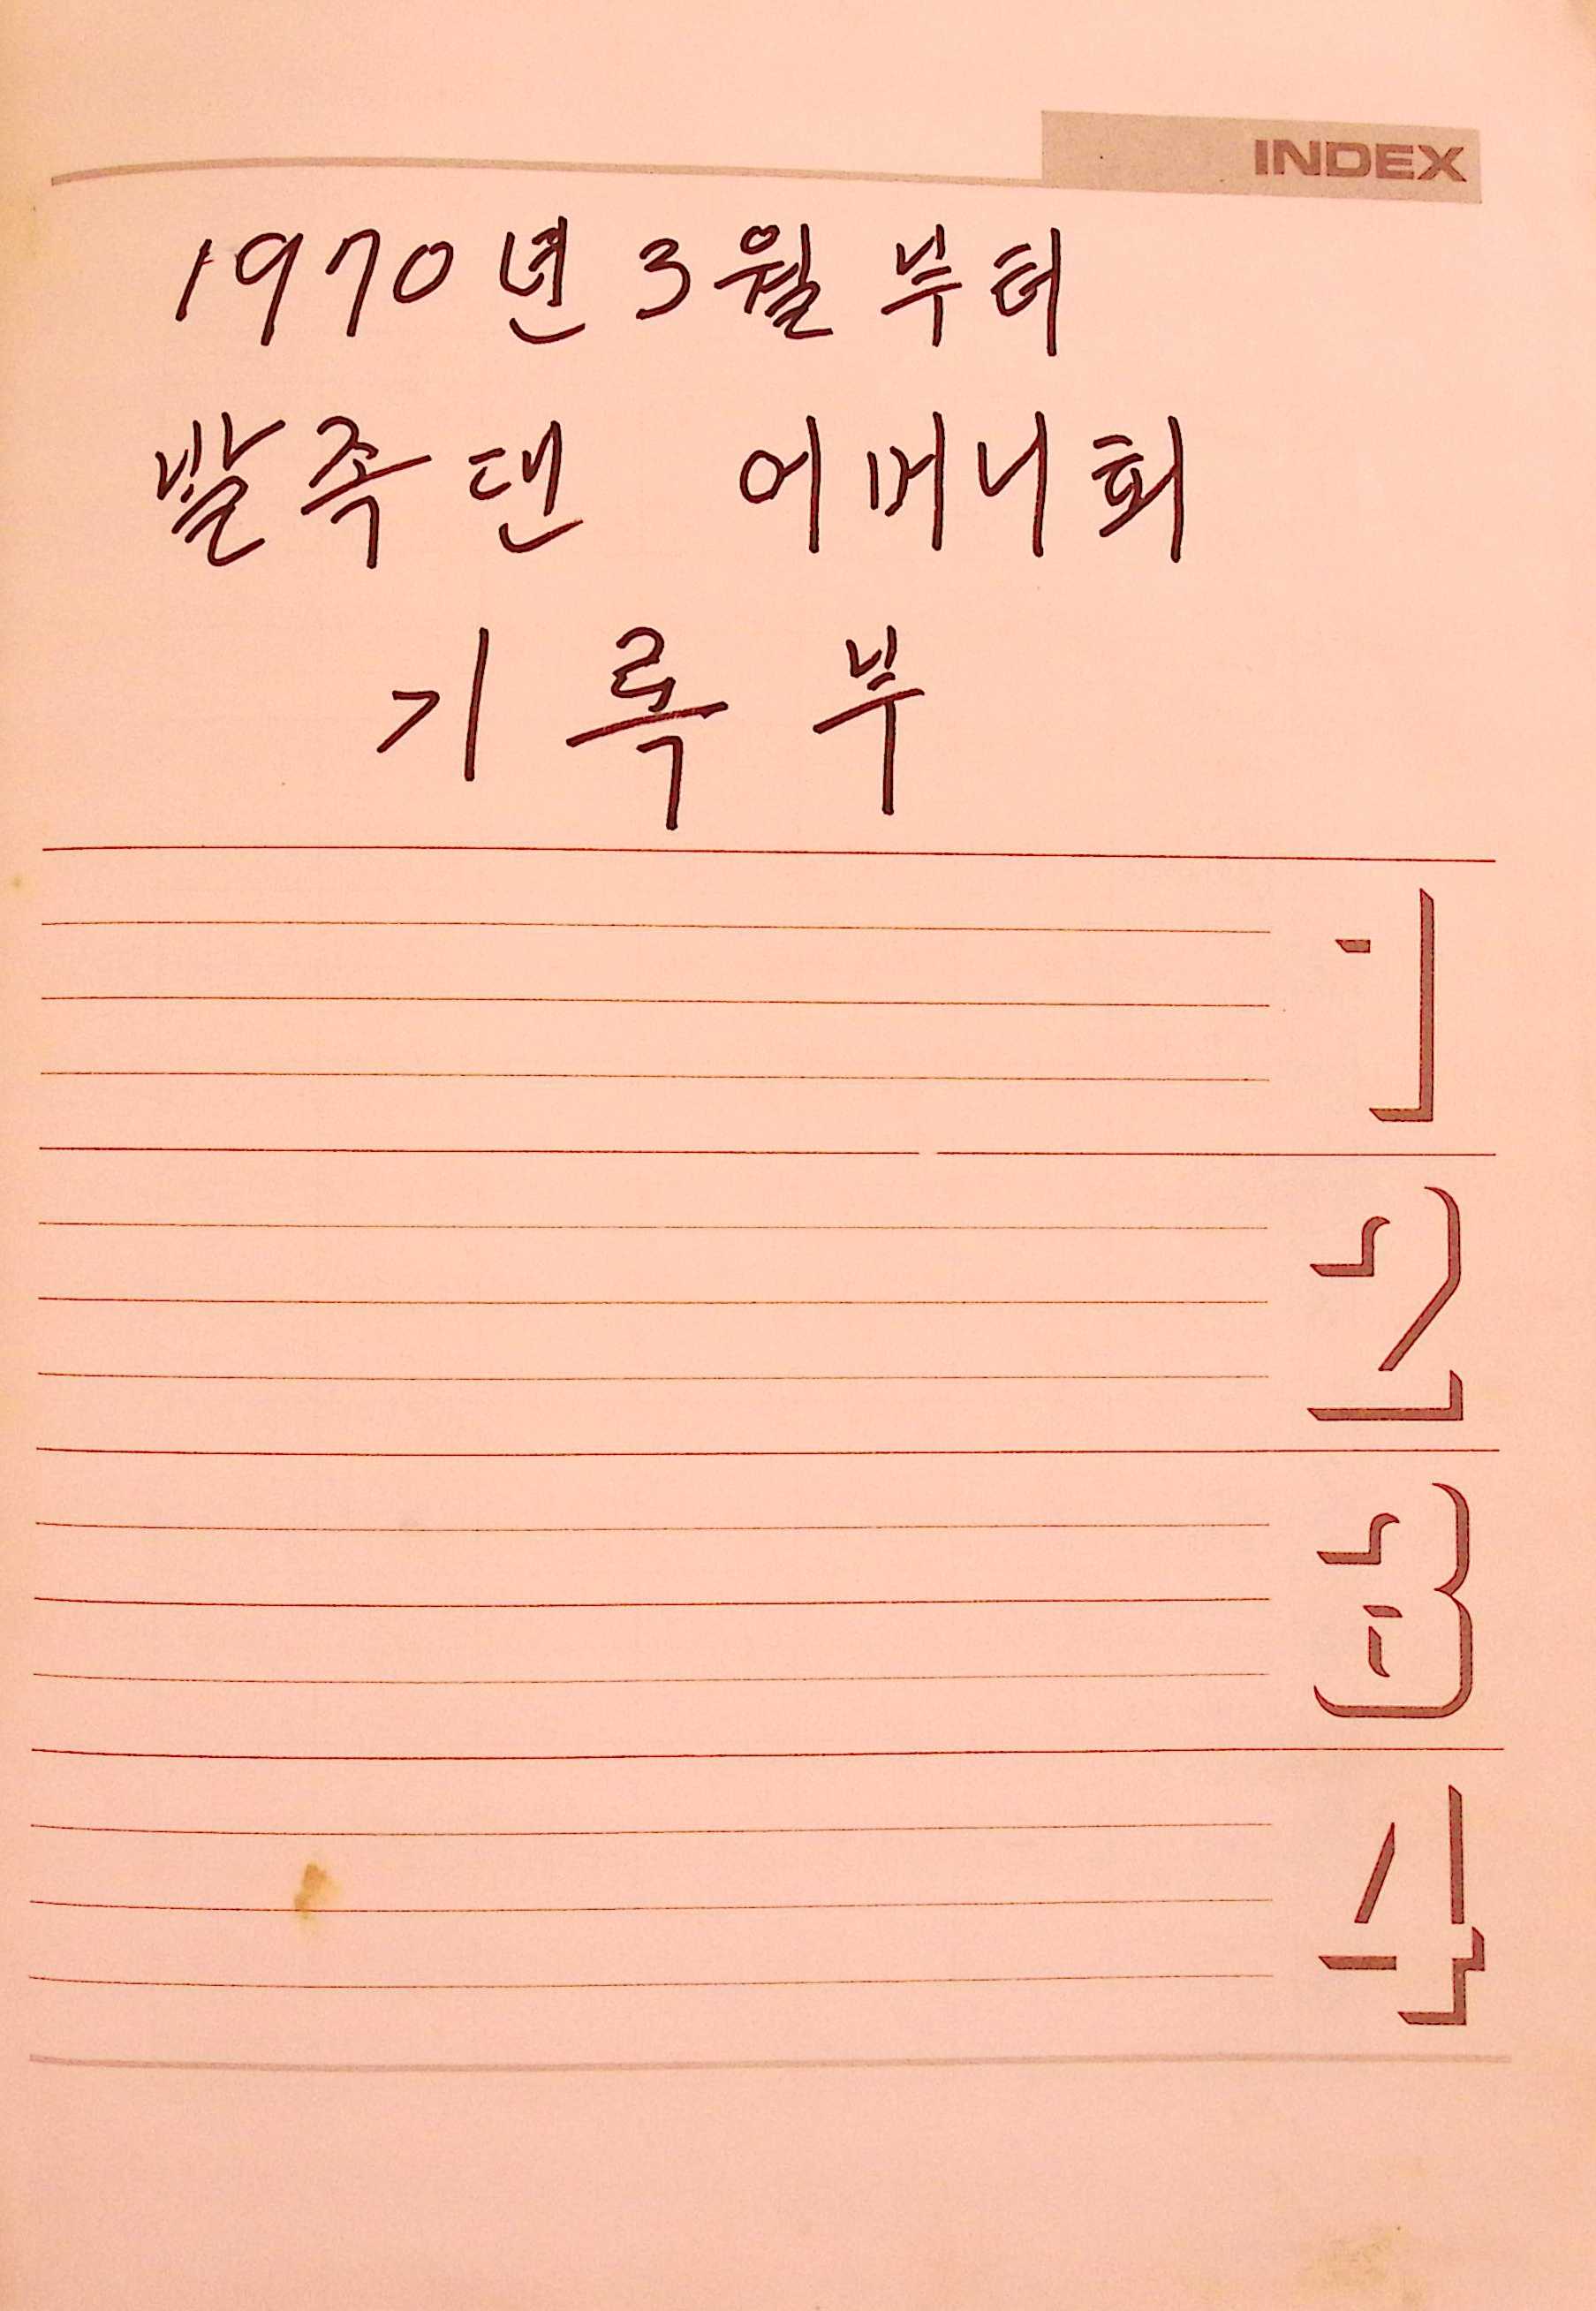 INDEX
1970년 3월부터
발족댄 어머니회
기록부
1
2
3
4